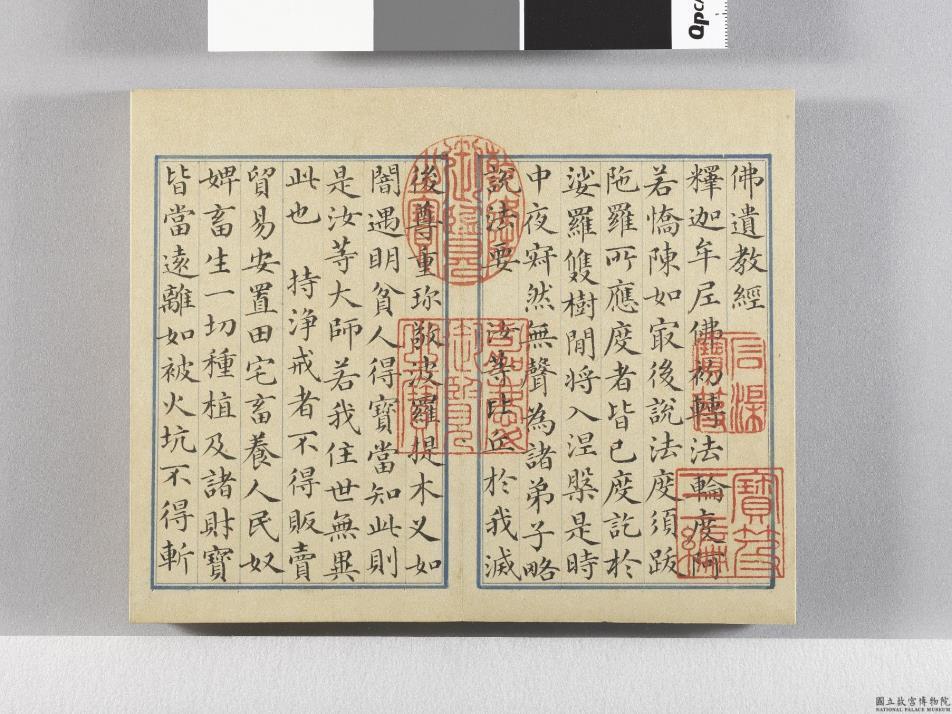 佛遺教經
釋迦牟尼佛初轉法輪度阿
若憍陳如㝡後說法度須跋
陁羅所應度者皆已度訖於
娑羅雙樹間將入涅槃是時
中夜寂然無聲為諸弟子略
說法要 汝等比丘於我滅
後尊重珎敬波羅提木叉如
闇遇明貧人得寶當知此則
是汝等大師若我住世無異
此也 持淨戒者不得販賣
貿易安置田宅畜養人民奴
婢畜生一切種植及諸財寶
皆當遠離如被火坑不得斬
寶笈
三編
QpcA
國立故宮博物院
NATIONAL PALACE MUSEUM